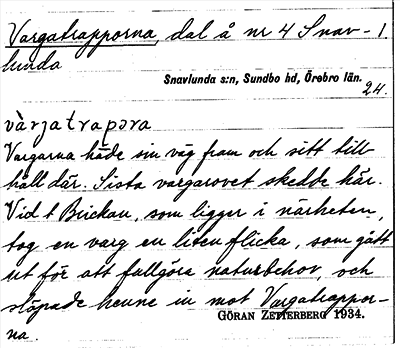 Vargatrapporna, dal å nr 4 Snav- 1
lunda
Snavlunda s:n, Sundbo hd, Örebro län.
24.
vàrjatrapəra
Vargarna hade sin väg fram och sitt till-
håll där. Sista vargarovet skedde här.
Vid t Brickan, som ligger i närheten,
tog en varg en liten flicka, som gått
ut för att fullgöra naturbehov, och
släpade henne in mot Vargatrappor-
na.
GÖRAN ZETTERBERG 1934.